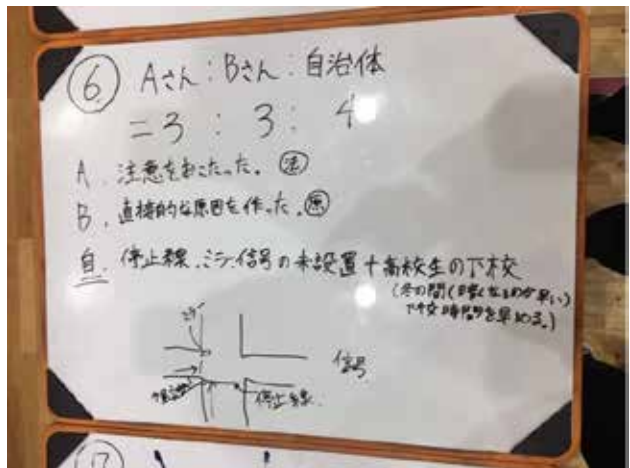 ⑥ Aさん:Bさん:自治体
=3:3:4
A. 注意をおこたった。㊟
B. 直接的な原因を作った。
自. 停止線、ミラー、信号の未設置+高校生の下校
(冬の間(暗くなるのが早い)
下校時間を早める。)
ミラー
信号
停止線
⑰